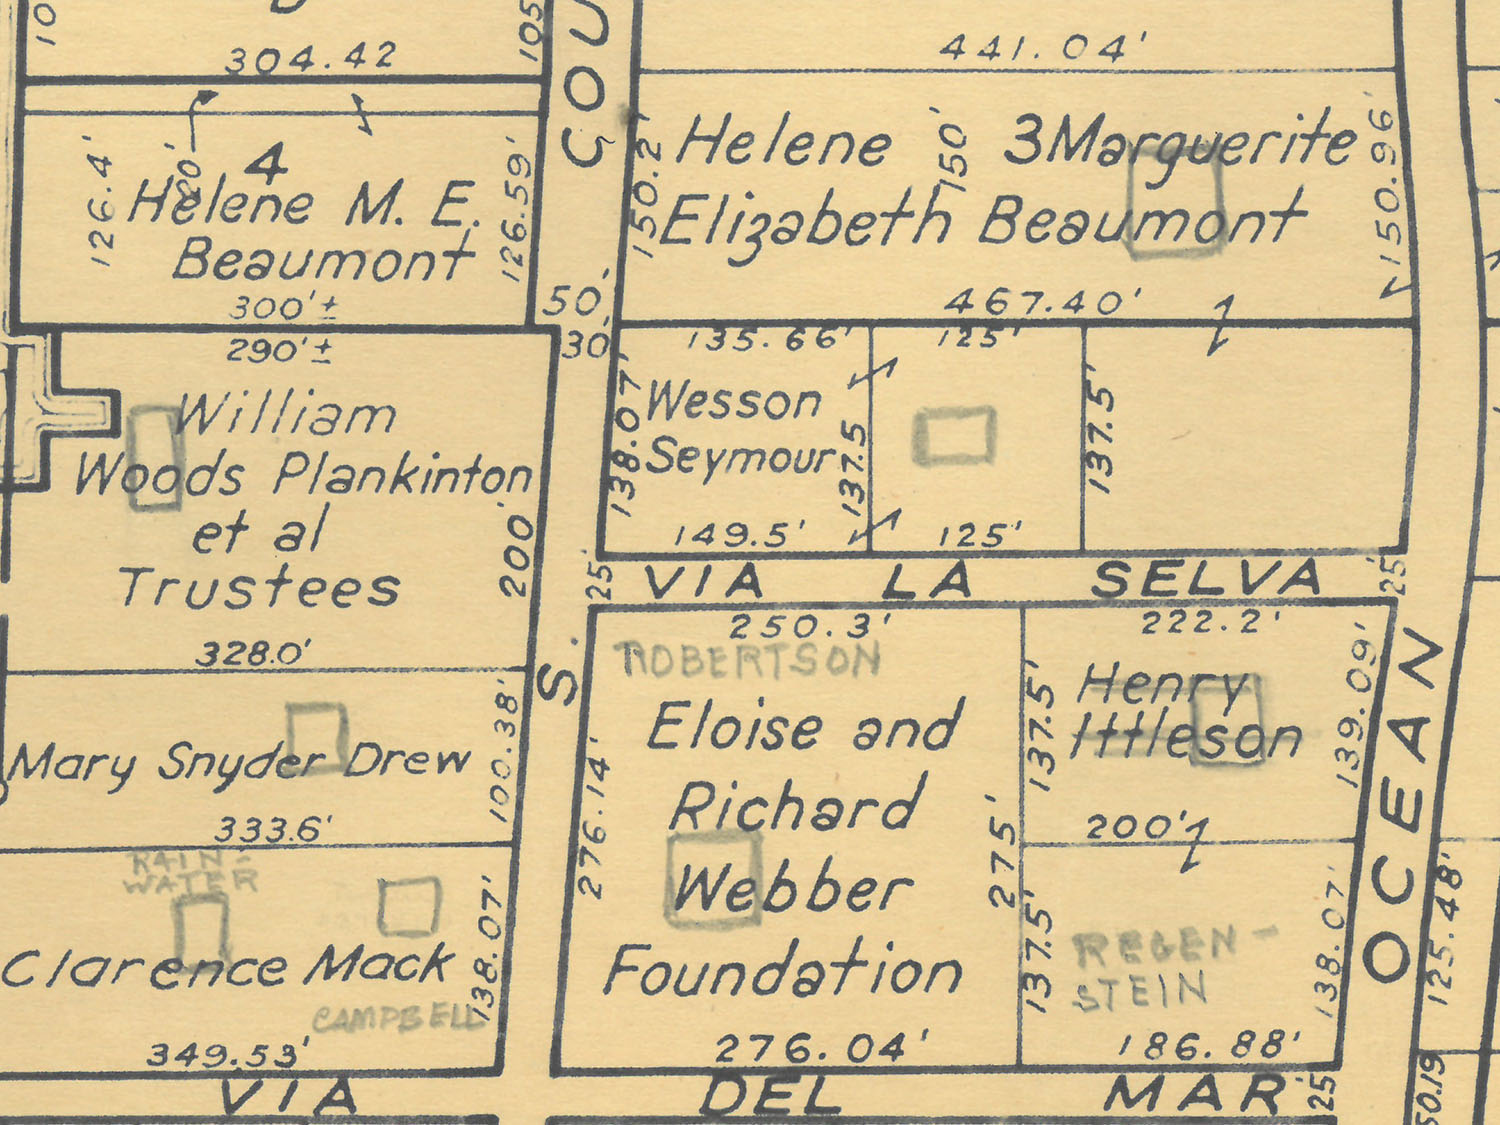 304.42
105
441.04'
126.4'
20'
4
Helene M. E.
Beaumont
126.59'
300'±
COU
150.2'
Helene
150'
3 Marguerite
Elizabeth Beaumont
150.96'
467.40'
50'
30'
290'±
William
Woods Plankinton
et al
Trustees
200'
328.0'
135.66'
125'
138.07'
Wesson
Seymour
137.5'
137.5'
149.5'
125'
25'
VIA LA SELVA
25'
S.
250.3'
ROBERTSON
Eloise and
Richard
Webber
Foundation
276.14'
275'
276.04'
222.2'
Henry
Ittleson
137.5'
139.09'
200'
REGEN-
STEIN
137.5'
138.07'
186.88'
Mary Snyder Drew
100.38'
333.6'
RAIN-
WATER
Clarence Mack
CAMPBELL
138.07'
349.53'
VIA DEL MAR
25'
OCEAN
125.48'
50.19